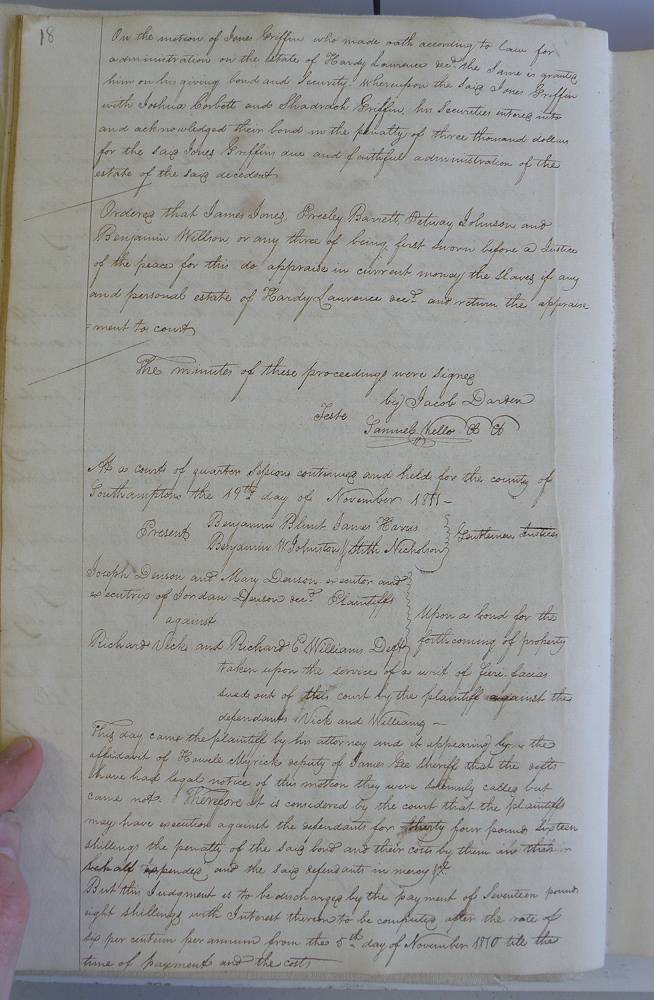 18
On the motion of Jones Griffin who made oath according to law for
administration on the estate of Hardy Laurence decd. the same is granted
him on his giving bond and security. Whereupon the said Jones Griffin
with Joshua Corbett and Shadrach Griffin, his Securities entered into
and acknowledged their bond in the penalty of three thousand dollars
for the said Jones Griffins due and faithfull administration of the
estate of the said decedent
Ordered that James Jones, Presley Barrett, Petway Johnson and
Benjamin Willson, or any three of being first sworn before a Justice
of the peace for this do appraise in current money the slaves if any
and personal estate of Hardy Laurence decd. and return the appraise
=ment to court
The minutes of these proceedings were signed
by Jacob Darden
Teste
Samuel Kello
At a court of quarter Sessions continued and held for the county of
Southampton the 19th day of November 1811 -
Benjamin Blunt James Harris
Present
Gentlemen Justices
Benjamin W Johnston Nicholson
Joseph Denson and Mary Denson executor and
executrix of Jordan Denson decd. Plaintiffs
against
Upon a bond for the
Richard Vick and Richard C Williams Deft
forthcoming of property
taken upon the service of a writ of fiere facias
sued out of this court by the plaintiff against the
defendants Vick and Williams -
This day came the plaintiff by his attorney and it appearing by the
affidavit of Howell Myrick deputy of James Gee Sheriff that the defts
have had legal notice of this motion they were solemnly called but
came not. Therefore It is considered by the court that the plaintiffs
may have execution against the defendants for thirty four pounds sixteen
shillings the penalty of the said bond and their costs by them
expended and the said defendants in mercy &c
But this Judgment is to be discharged by the payment of Seventeen pounds
eight shillings with Interest thereon to be computed after the rate of
six per centum per annum from the 5th day of November 1810 till the
time of payment and the costs